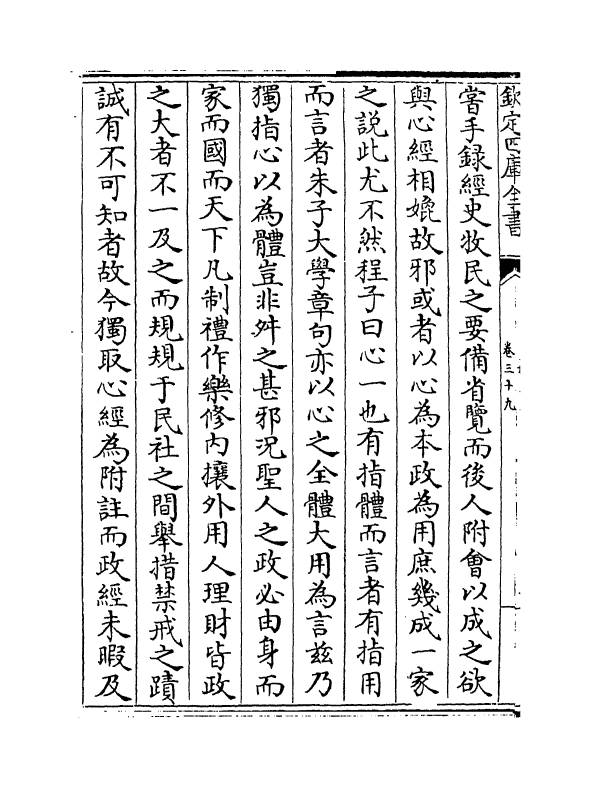 欽定四庫全書
卷三十九
嘗手録經史牧民之要備省覽而後人附會以成之欲
與心經相媲故邪或者以心為本政為用庶幾成一家
之説此尤不然程子曰心一也有指體而言者有指用
而言者朱子大學章句亦以心之全體大用為言兹乃
獨指心以為體豈非舛之甚邪況聖人之政必由身而
家而國而天下凡制禮作樂修内攘外用人理財皆政
之大者不一及之而規規于民社之間舉措禁戒之蹟
誠有不可知者故今獨取心經為附註而政經未暇及